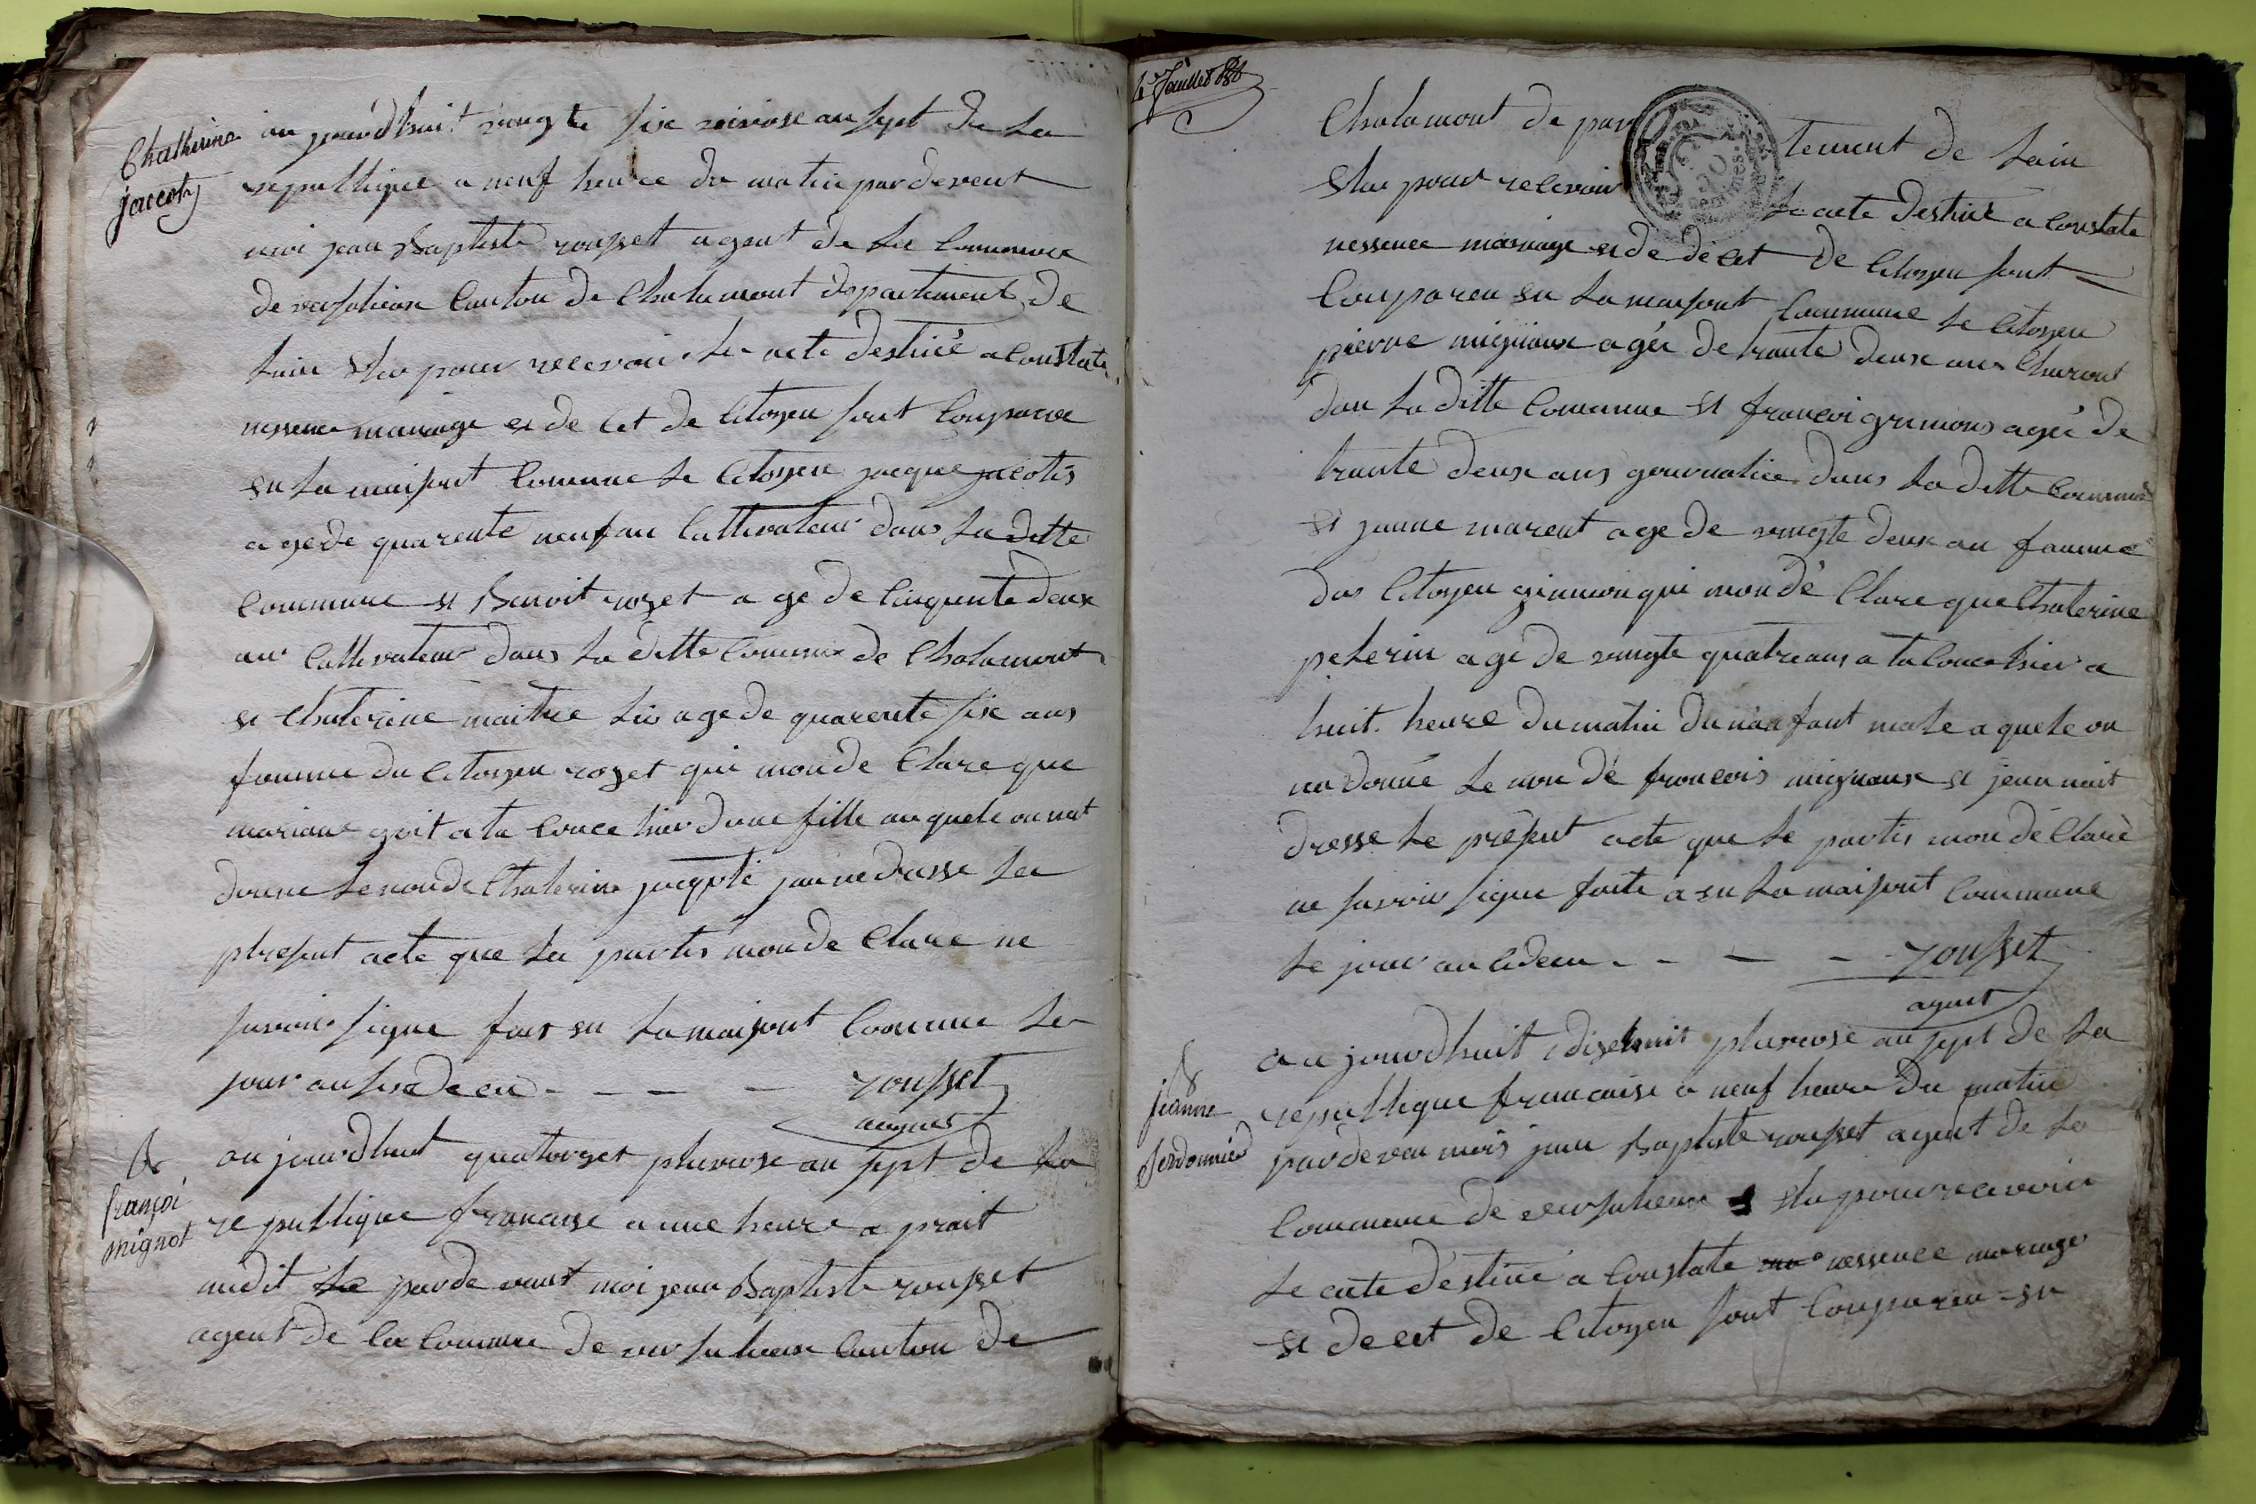 Chatherine
jacot
au jourdhuit vingte six nivose an sept de la
republique a neuf heurce du matin par devent
moi jean Baptiste rousset agent de la Commune
de versalieux Canton de Chalamont departement de
lain elu pour recevoir le acte destiné a Constate
nessence mariage et de Cet de Citoyen sont Conparue
en la maisont Comune le Citoyen jacque jacotis
age de quarente neuf an Cultivateur dans la ditte
Commune et Benoit rozet a ge de Cinquente deux
an Cultivateur dans la ditte Commune de Chalamont
et Chaterine maitre lis age de quarente six ans
famme du Citoyen rozet qui mon de Clare que
mariane goit a ta Couce hier dune fille au quele on nat
donne le non de Chaterine jacote jau ne drasse le
present acte que les partis mon de Clare ne
savoir signe fait en la maisont Comune le
jour an susdeen - - - - rousset
agent
&
françoi
mignot
au jourdhuit quatorzet pluviose an sept de la
republique francaise a une heure a prait
midit le par de vant moi jean Baptiste rousset
agent de la Commune de versalieux Canton de
le Feuillet
Chalamont de par tement de lain
elue pour recevoir le acte destiné a Constate
nessence mariage et de décet de Citoyen sont
Conparea en la maisont Commune le Citoyen
pierre migniaux agée de trante deux ans Charont
dan la ditte Commune et francoi grimons agée de
trante deux ans gournalier dans la ditte Commune
et janne marent age de vingte deux an famme
du Citoyen gimmon qui mon dé Clare que Chaterine
pelerin agé de vingte quatre ans a ta Couce hier a
huit heure du matin du nanfant male a quele on
na donné le non dé francois mignaux et jean nait
dresse le présent acte que le partis mon dé Claré
ne savoir signe faite a en la maisont Commune
le jour an cideen - - - - rousset
agent
&
jeanne
au jourdhuit dixehuit pluviose an sept de la
republique francaise a neuf heure du matin
par devan mois jean Baptiste rousset agent de la
Commune de versalieux elu pour recevoir
le acte déstiné a Constate nessence mariage
et de cet de Citoyen sont Conparea en